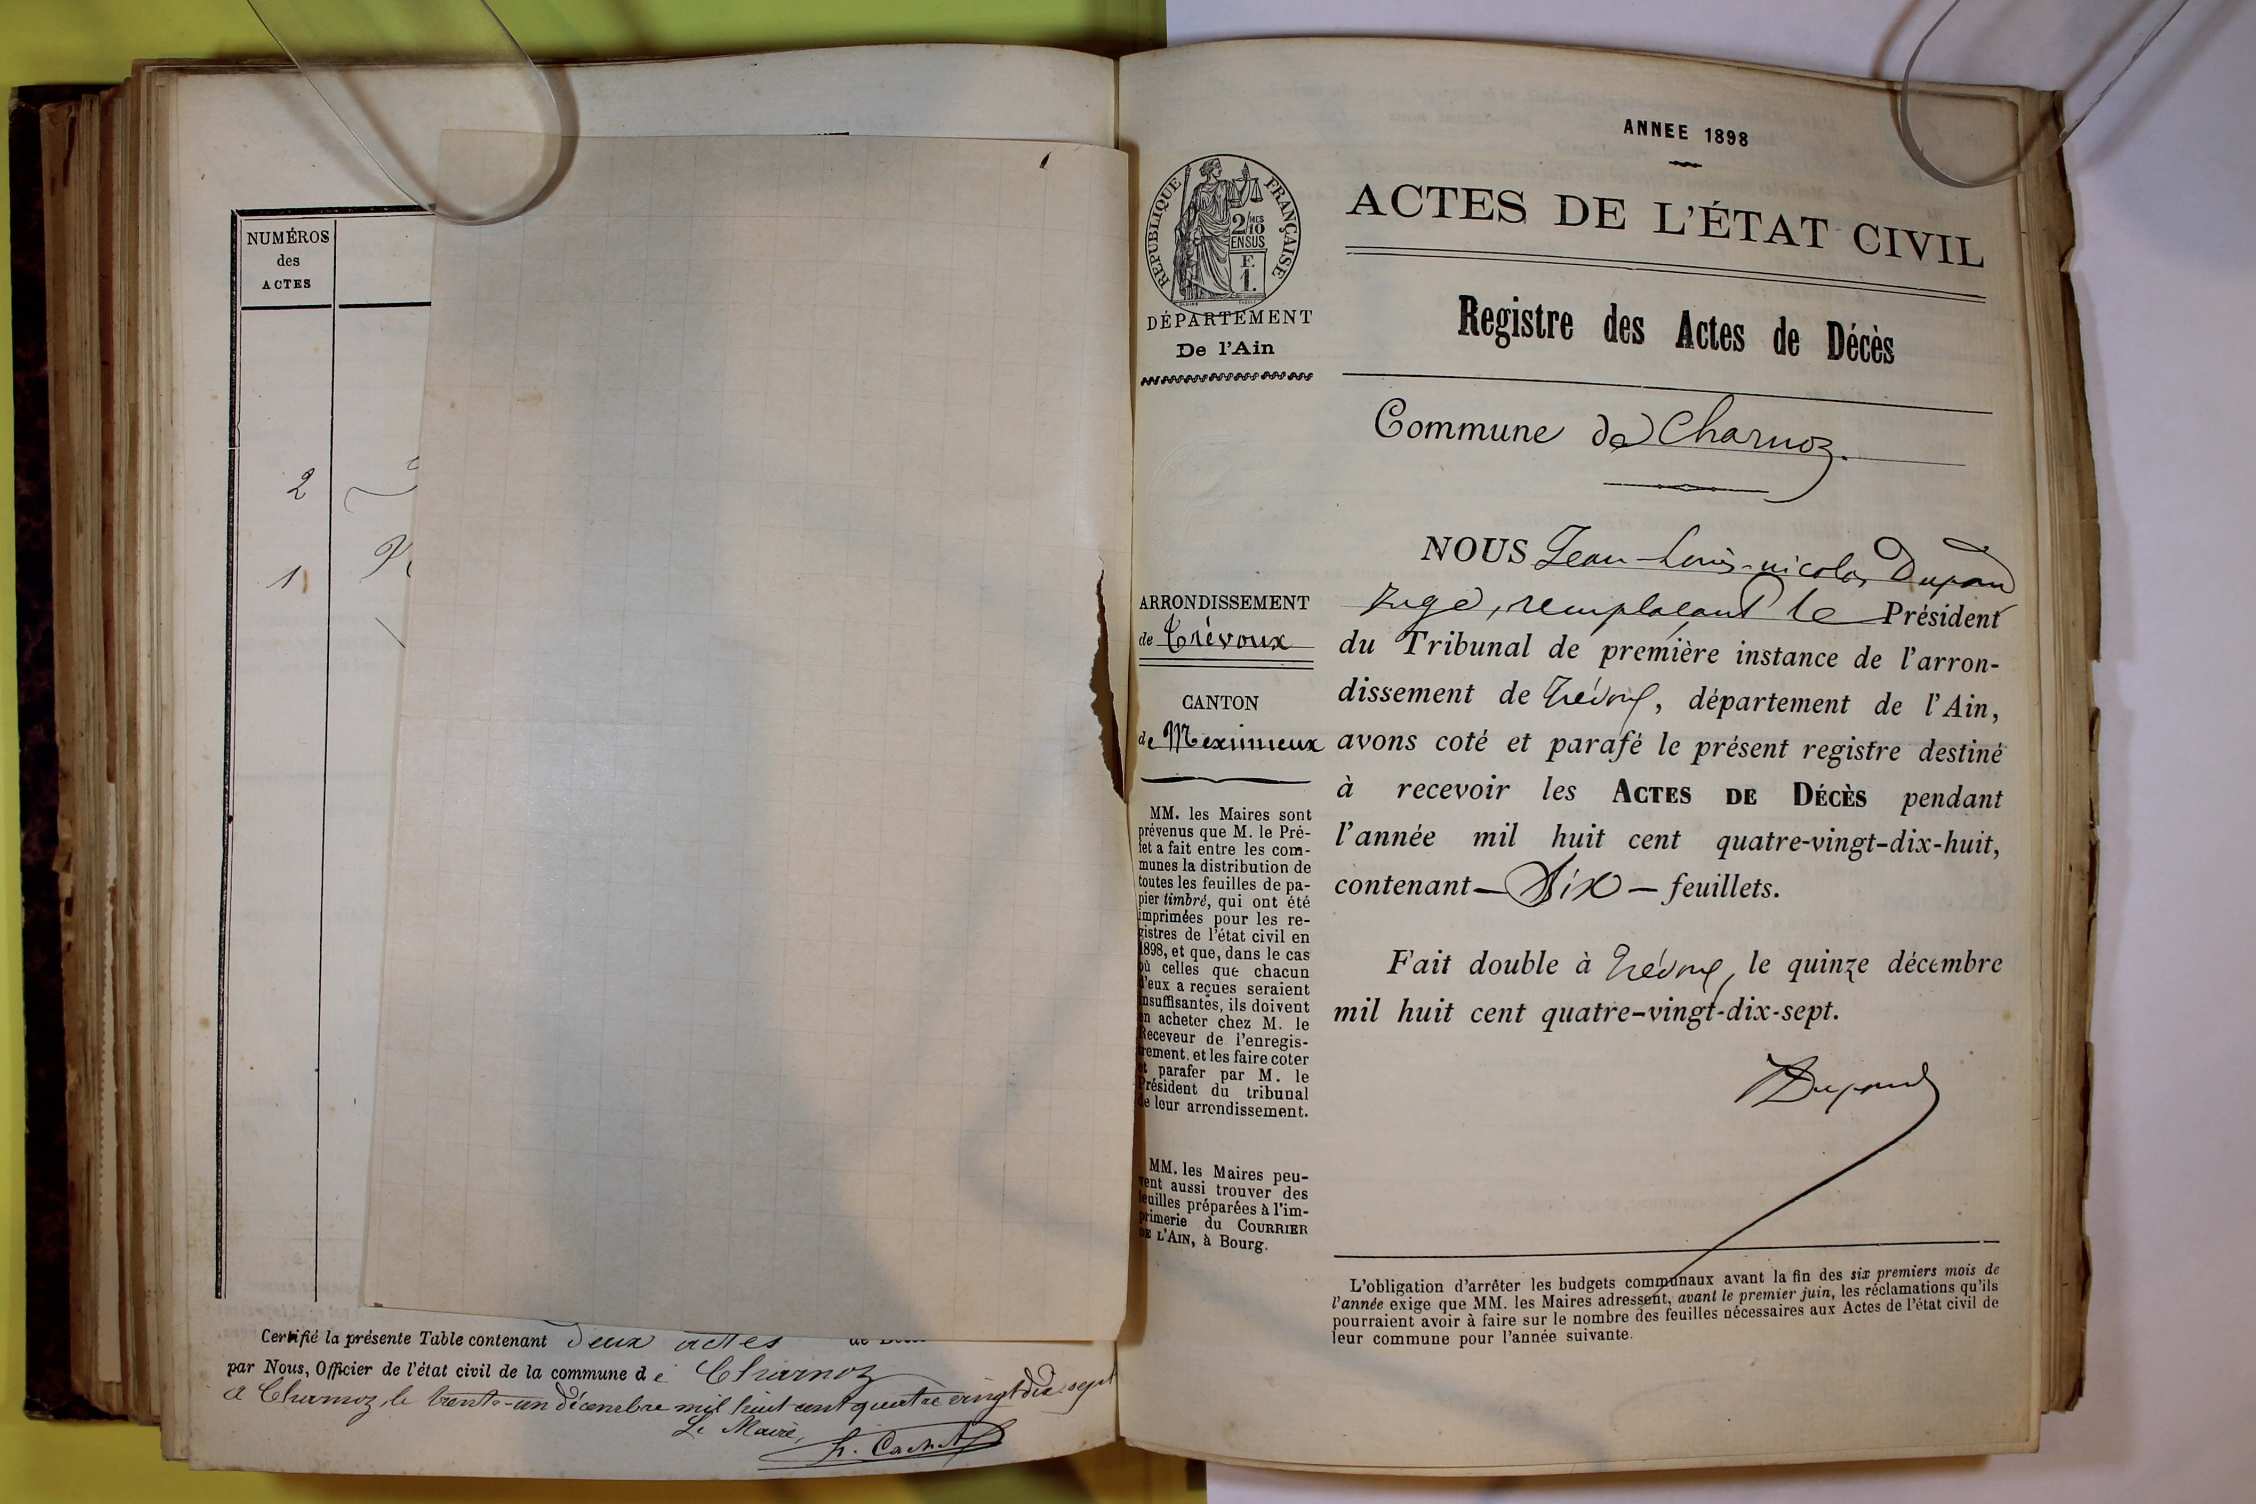 NUMÉROS
des
ACTES
2
1
Certifié la présente Table contenant deux actes
par Nous, Officier de l'état civil de la commune d e Charnoz
a Charnoz, le trente-un décembre mil huit cent quatre vingt dix sept
Le Maire,
RÉPUBLIQUE FRANÇAISE
2/10 MES
EN SUS
F.
1.
DÉPARTEMENT
De l'Ain
ARRONDISSEMENT
de Trévoux
CANTON
de Meximieux
MM. les Maires sont
prévenus que M. le Pré-
fet a fait entre les com-
munes la distribution de
toutes les feuilles de pa-
pier timbré, qui ont été
imprimées pour les re-
gistres de l'état civil en
1898, et que, dans le cas
où celles que chacun
d'eux a reçues seraient
insuffisantes, ils doivent
en acheter chez M. le
Receveur de l'enregis-
trement. et les faire coter
et parafer par M. le
Président du tribunal
de leur arrondissement.
MM. les Maires peu-
vent aussi trouver des
feuilles préparées à l'im-
primerie du COURRIER
DE L'AIN, à Bourg.
ANNEE 1898
ACTES DE L'ÉTAT CIVIL
Registre des Actes de Décès
Commune de Charnoz.
NOUS Jean-Louis-nicolas Dupond
Juge, remplaçant le Président
du Tribunal de première instance de l'arron-
dissement de Trévoux, département de l'Ain,
avons coté et parafé le présent registre destiné
à recevoir les ACTES DE DÉCÈS pendant
l'année mil huit cent quatre-vingt-dix-huit,
contenant — Six — feuillets.
Fait double à Trévoux, le quinze décembre
mil huit cent quatre-vingt-dix-sept.
Dupond
L'obligation d'arrêter les budgets communaux avant la fin des six premiers mois de
l'année exige que MM. les Maires adressent, avant le premier juin, les réclamations qu'ils
pourraient avoir à faire sur le nombre des feuilles nécessaires aux Actes de l'état civil de
leur commune pour l'année suivante.